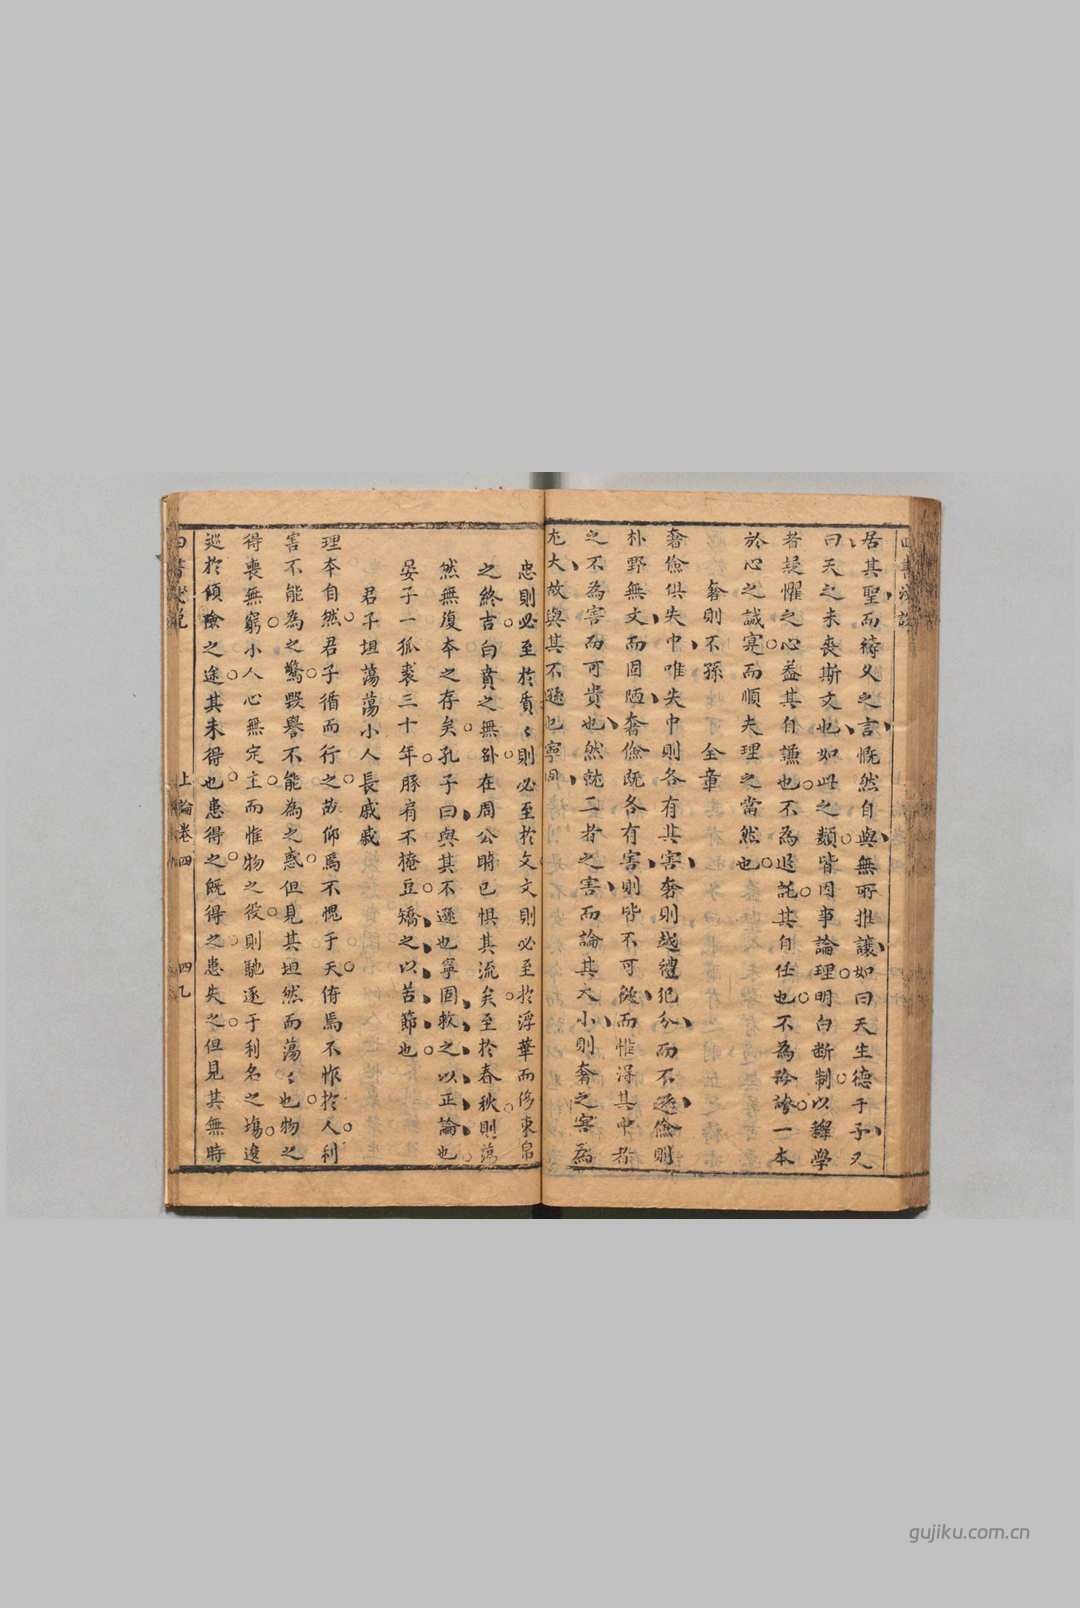 居其聖而待又之言慨然自與無所推讓如曰天生德于予又
曰天之未喪斯文也如此之類皆因事論理明白斷制以繹學
者疑懼之心益其自謙也不為退託其自任也不為矜誇一本
於心之誠寔而順夫理之當然也
奢則不孫 全章
奢儉俱失中唯失中則各有其害奢則越禮犯分而不遜儉則
朴野無文而固陋奢儉既各有害則皆不可從而惟得其中者
之不為害而可貴也然就二者之害而論其大小則奢之害為
尤大故與其不遜也寧固
忠則必至於質〻則必至於文文則必至於浮華而侈束帛
之終吉白賁之無咎在周公時已惧其流矣至於春秋則蕩
然無復本之存矣孔子曰與其不遜也寧固救之以正論也
晏子一狐裘三十年豚肩不掩豆矯之以苦節也
君子坦蕩蕩小人長戚戚
理本自然君子循而行之故仰焉不愧于天俯焉不怍於人利
害不能為之驚毀譽不能為之惑但見其坦然而蕩〻也物之
得喪無窮小人心無定主而惟物之役則馳逐于利名之場逡
巡於傾險之途其未得也患得之既得之患失之但見其無時
上論卷四 四乙
gujiku.com.cn